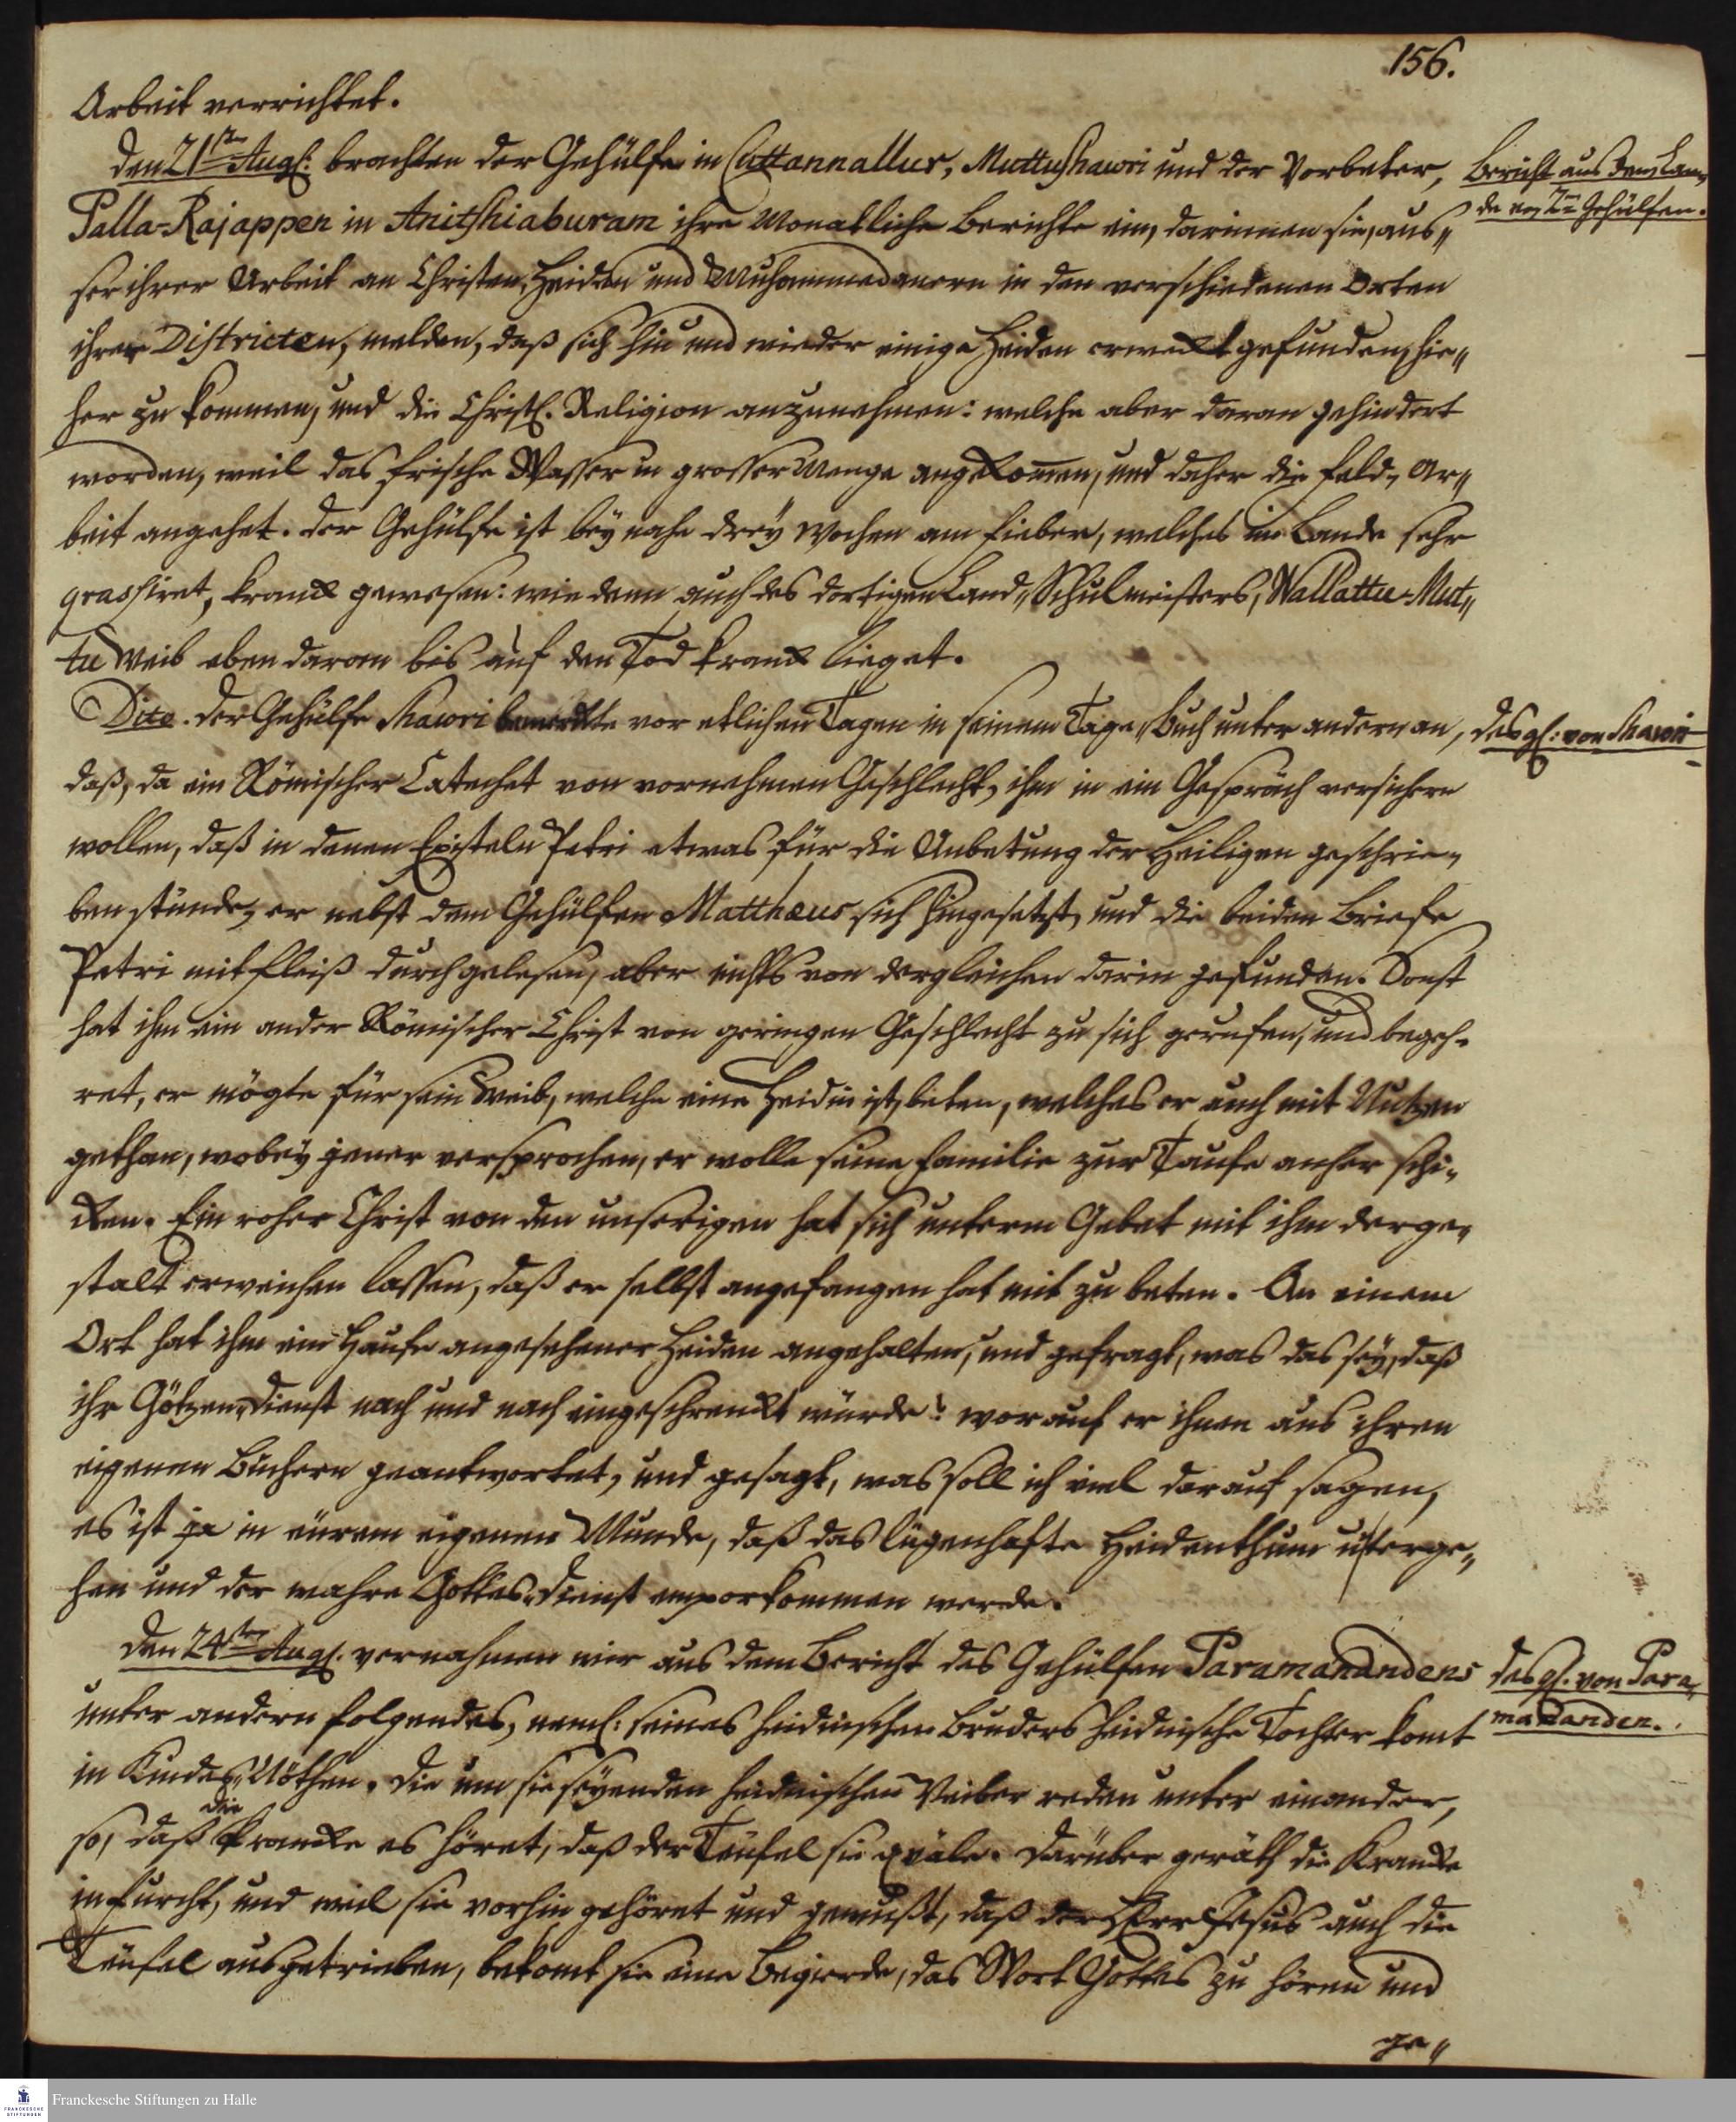 156.
Arbeit verrichtet.
Den 21sten Aug: brachten der Gehülfe in Cattannallur, Muttuschawri und der Vorbeter,
Bericht aus dem Lan„
de von 2en Gehülfen.
Palla-Rajappen in Anitshiaburam ihre Monatliche Berichte ein, darinnen sie, aus„
ser ihrer Arbeit an Christen, Heiden und Muhammedanern in den verschiedenen Orten
ihrer Districten, melden, daß sich hin und wieder einige Heiden erweckt gefunden, hie„
her zu kommen, und die Christl. Religion anzunehmen: welche aber daran gehindert
worden, weil das frische Wasser in grosser Menge angekomen, und daher die Feld„ Ar„
beit angehet. Der Gehülfe ist bey nahe drey Wochen am Fieber, welches im Lande sehr
grassiret, kranck gewesen: wie denn auch des dortigen Land„Schulmeisters, Wallattu-Mut„
tu Weib eben daran bis auf den Tod kranck lieget.
Dito. Der Gehülfe Shawri bemerckte vor etlichen Tagen in seinem Tage„Buch unter andern an,
desgl: von Shawri
daß, da ein Römischer Catechet von vornehmen Geschlecht, ihm in ein Gespräch versichern
wollen, daß in denen Episteln Petri etwas für die Anbetung der Heiligen geschrie„
ben stünde, er nebst dem Gehülfen Matthæus sich hingesetzt, und die beiden Briefe
Petri mit Fleiß durchgelesen, aber nichts von dergleichen darin gefunden. Sonst
hat ihm ein ander Römischer Christ von geringen Geschlecht zu sich gerufen, und begeh„
ret, er mögte für sein Weib, welche eine Heidin ist, beten, welches er auch mit Nutzen
gethan, wobey jener versprochen, er wolle seine Familie zur Taufe anher schi„
cken. Ein roher Christ von den unserigen hat sich unterm Gebet mit ihm derge„
stalt erweichen lassen, daß er selbst angefangen hat mit zu beten. An einem
Ort hat ihm ein Haufe angesehener Heiden angehalten, und gefragt, was das sey, daß
ihr Götzen„Dienst nach und nach eingeschrenckt würde? worauf er ihnen aus ihren
eigenen Büchern geantwortet, und gesagt, was soll ich viel darauf sagen,
es ist ja in eürem eigenen Munde, daß das lügenhafte Heidenthum unterge„
hen und der wahre Gottes„Dienst emporkommen werde.
Den 24sten Aug. vernahmen wir aus dem Bericht des Gehülfen Paramanandens
desgl. von Para„
mananden.
unter andern folgendes, neml: seines heidnischen Bruders heidnische Tochter komt
in Kindes„Nöthen. Die um sie seyenden heidnischen Weiber reden unter einander,
so, daß die Krancke es höret, daß der Teüfel sie qväle. Darüber geräth die Krancke
in Furcht, und weil sie vorhin gehöret und gewußt, daß der HErr Jesus auch die
Teüfel ausgetrieben, bekomt sie eine Begierde, das Wort Gottes zu hören und
ge„
FRANCKESCHE
STIFTUNGEN
Franckesche Stiftungen zu Halle